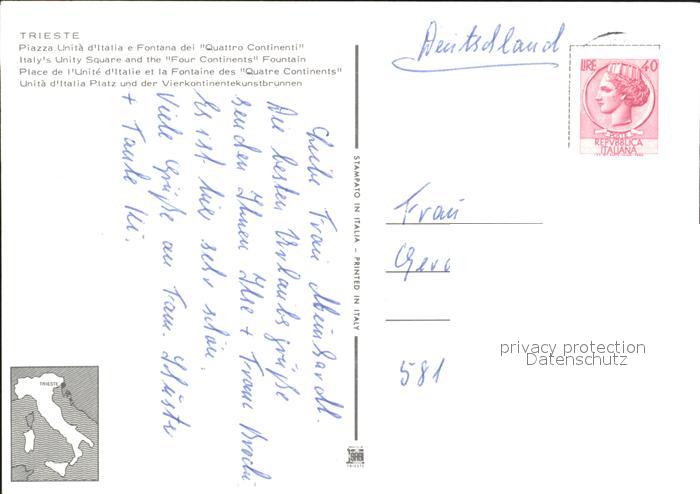 TRIESTE
Piazza Unità d'Italia e Fontana dei "Quattro Continenti"
Italy's Unity Square and the "Four Continents" Fountain
Place de l'Unité d'Italie et la Fontaine des "Quatre Continents"
Unità d'Italia Platz und der Vierkontinentekunstbrunnen
Deutschland
LIRE 40
POSTE
REPVBBLICA
ITALIANA
Liebe Frau
Die besten Urlaubsgrüße
senden Ihnen Ilse + Frau
Es ist hier sehr schön.
Viele Grüße an Fam.
+ Tante
STAMPATO IN ITALIA - PRINTED IN ITALY
Frau
581
privacy protection
Datenschutz
TRIESTE
TRIESTE